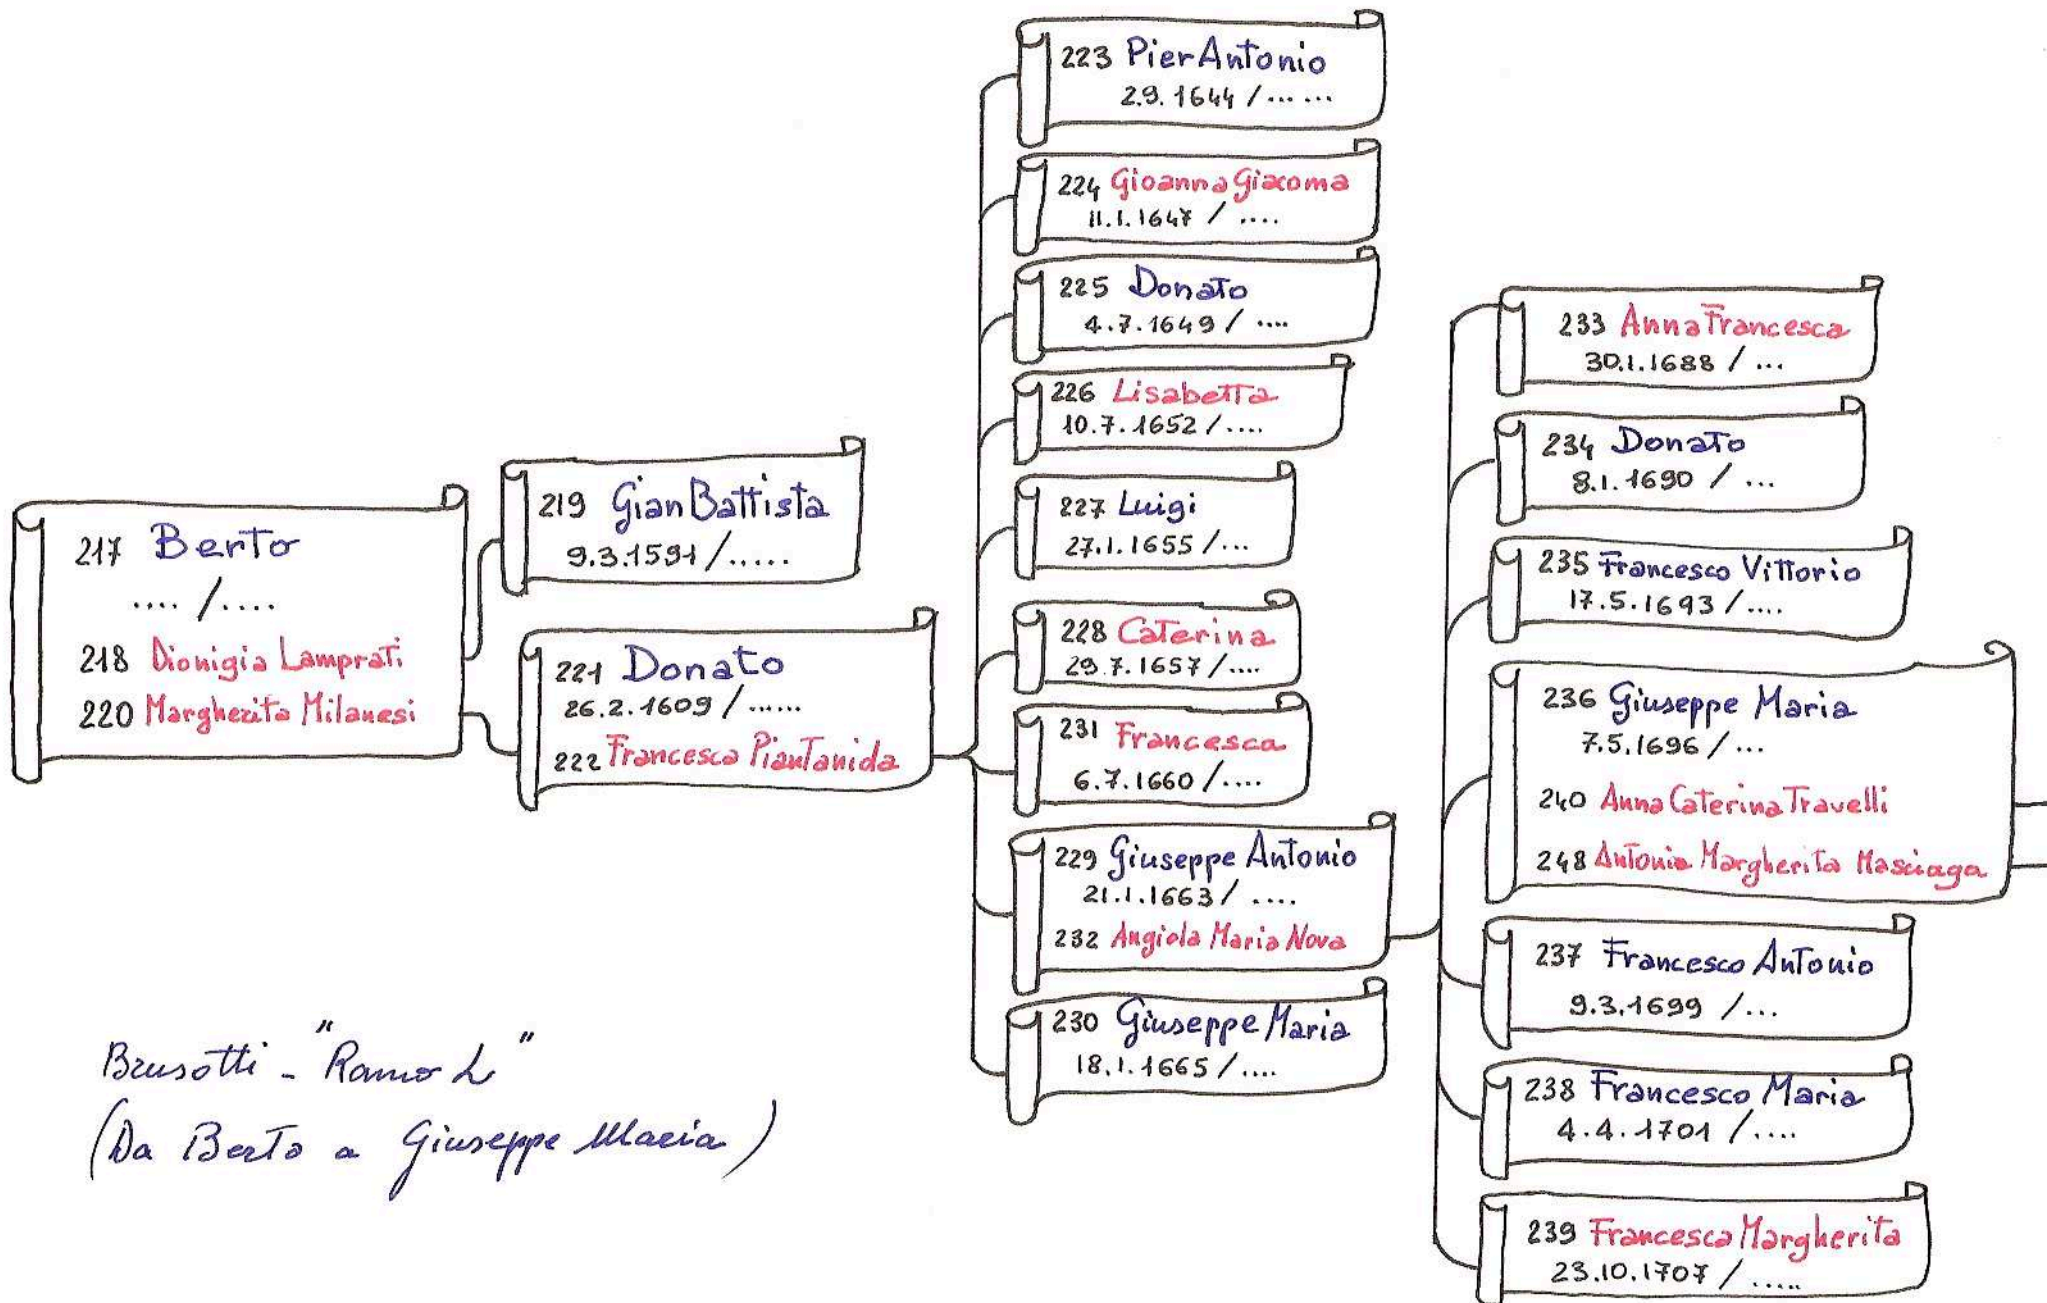 217 Berto
.... /....
218 Dionigia Lamprati
220 Margherita Milanesi
219 Gian Battista
9.3.1591 /.....
221 Donato
26.2.1609 /......
222 Francesca Piantanida
223 Pier Antonio
2.9.1644 /... ...
224 Gioanna Giacoma
11.1.1647 / ....
225 Donato
4.7.1649 / ....
226 Lisabetta
10.7.1652 /....
227 Luigi
27.1.1655 /...
228 Caterina
29.7.1657 /....
231 Francesca
6.7.1660 /....
229 Giuseppe Antonio
21.1.1663 / ....
232 Angiola Maria Nova
230 Giuseppe Maria
18.1.1665 /....
233 Anna Francesca
30.1.1688 / ...
234 Donato
8.1.1690 / ...
235 Francesco Vittorio
17.5.1693 /....
236 Giuseppe Maria
7.5.1696 /...
240 Anna Caterina Travelli
248 Antonia Margherita Masciaga
237 Francesco Antonio
9.3.1699 /...
238 Francesco Maria
4.4.1701 /....
239 Francesca Margherita
23.10.1707 / .....
Brusotti - "Ramo L"
(Da Berto a Giuseppe Maria)